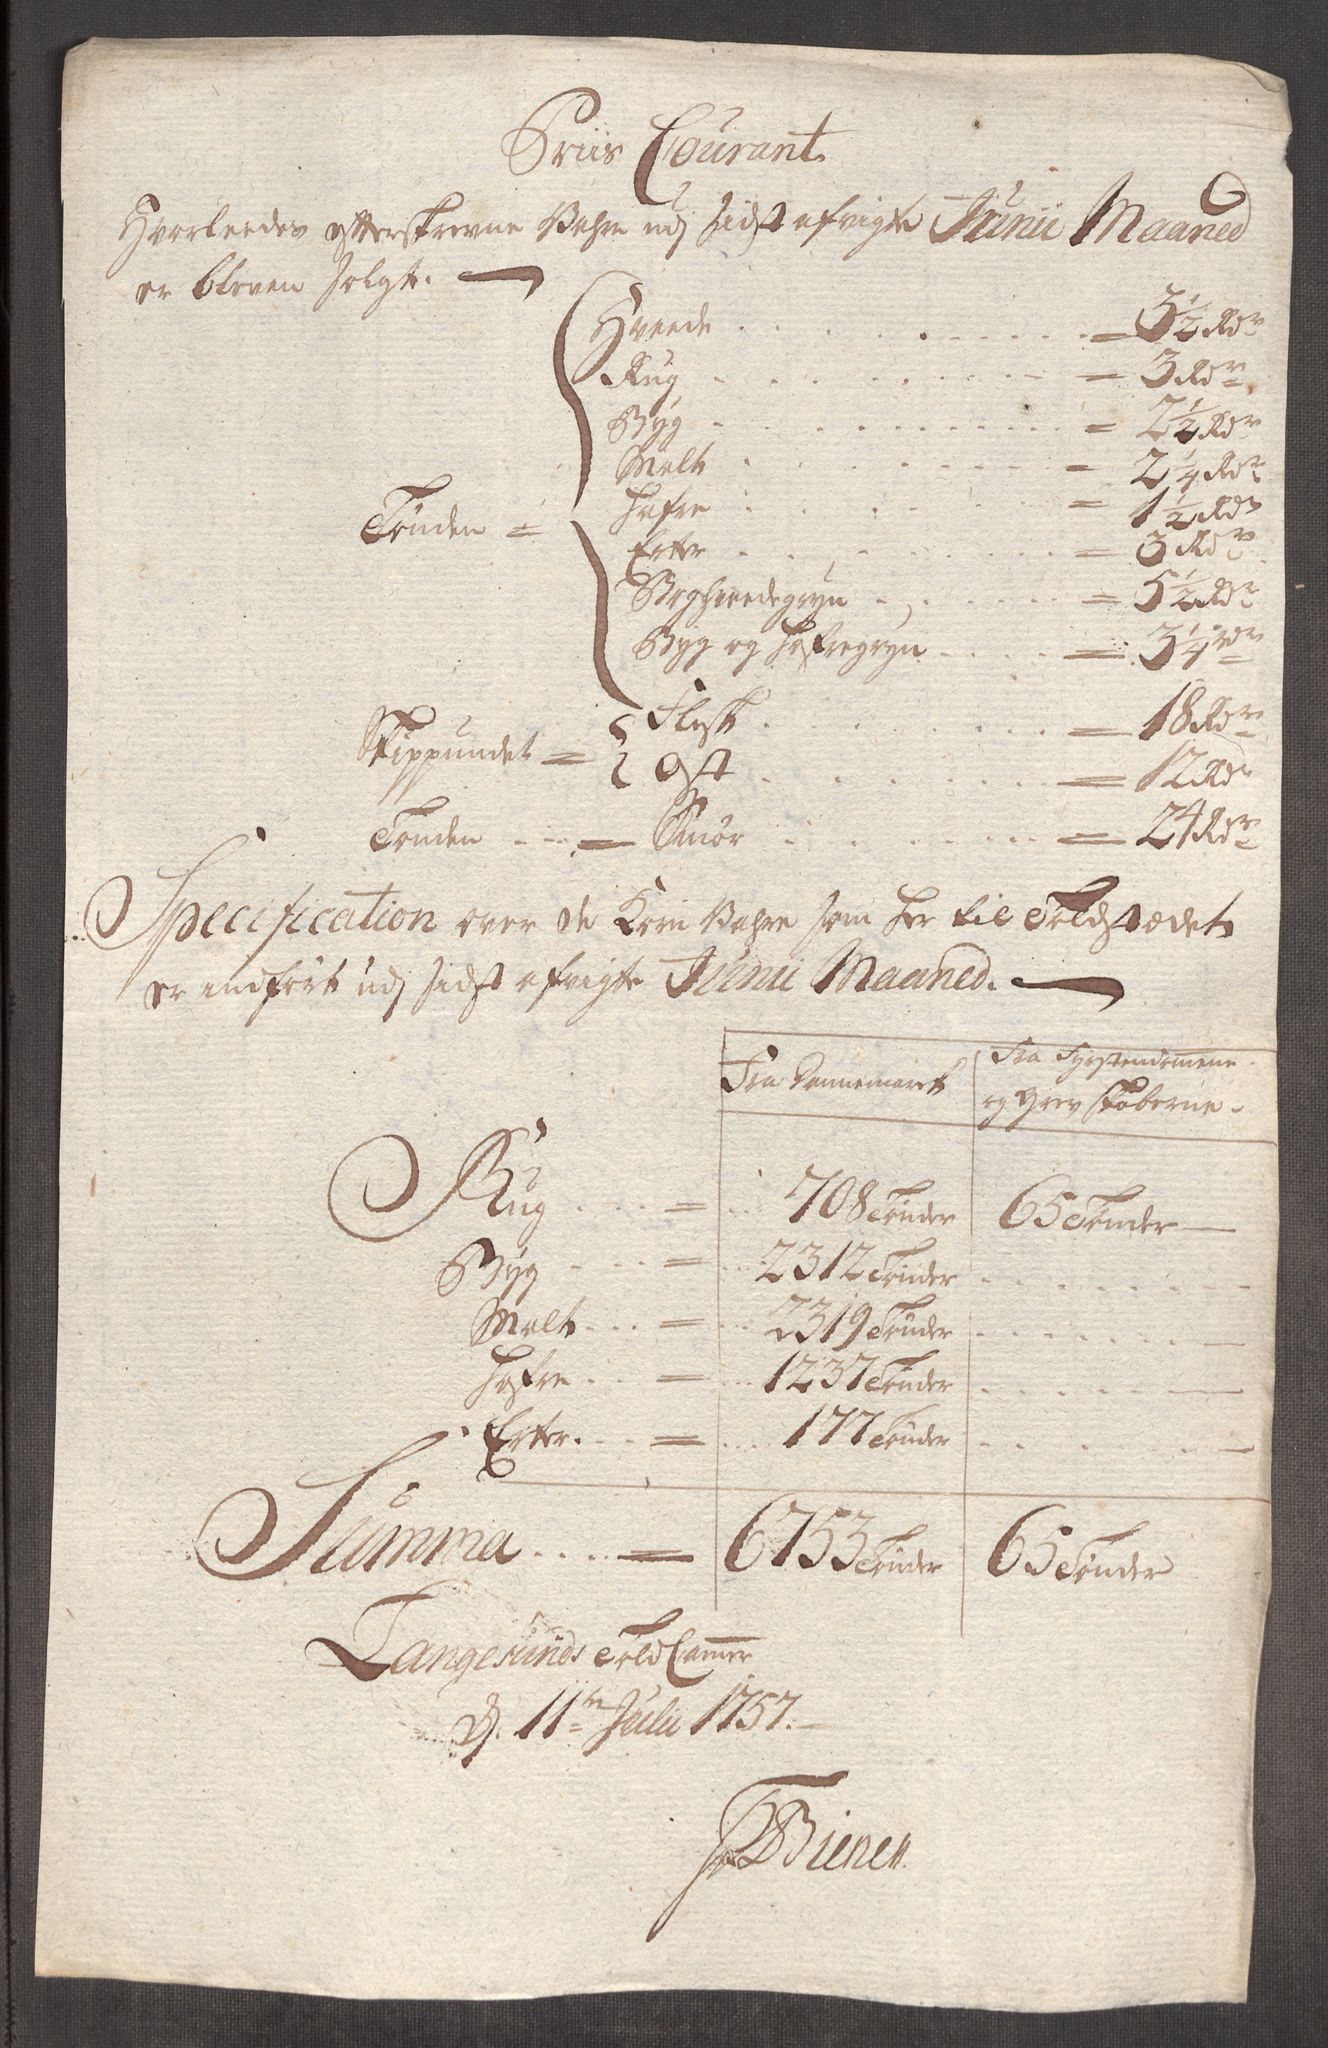 Priis Courant
Hvorleedes efterskrevne Vahre udj sidst afvigte Junii Maaned
er bleven solgt.
Hveede = 3 1/2 Rdr
Rug = 3 Rdr
Byg = 2 1/2 Rdr
Malt = 2 1/4 Rdr
Tønden = Hafre = 1 1/2 Rdr
Erter = 3 Rdr
Boghveedegryn = 5 1/2 Rdr
Byg og Hafregryn = 3 1/4 Rdr
Skippundet = Flesk = 18 Rdr
Ost = 12 Rdr
Tønden = Smør = 24 Rdr
Specification over de Korn Vahre som her til Toldstædet
er indført udj sidst afvigte Junii Maaned.
Fra Dannemarck Fra Fyrstendømene
og Grevskaberne
Rug = 708 Tønder 65 Tønder
Byg = 2312 Tønder
Malt = 2319 Tønder
Hafre = 1237 Tønder
Erter = 177 Tønder
Summa = 6753 Tønder 65 Tønder
Langesunds Told Camer
d. 11te Julii 1757.
Bienen